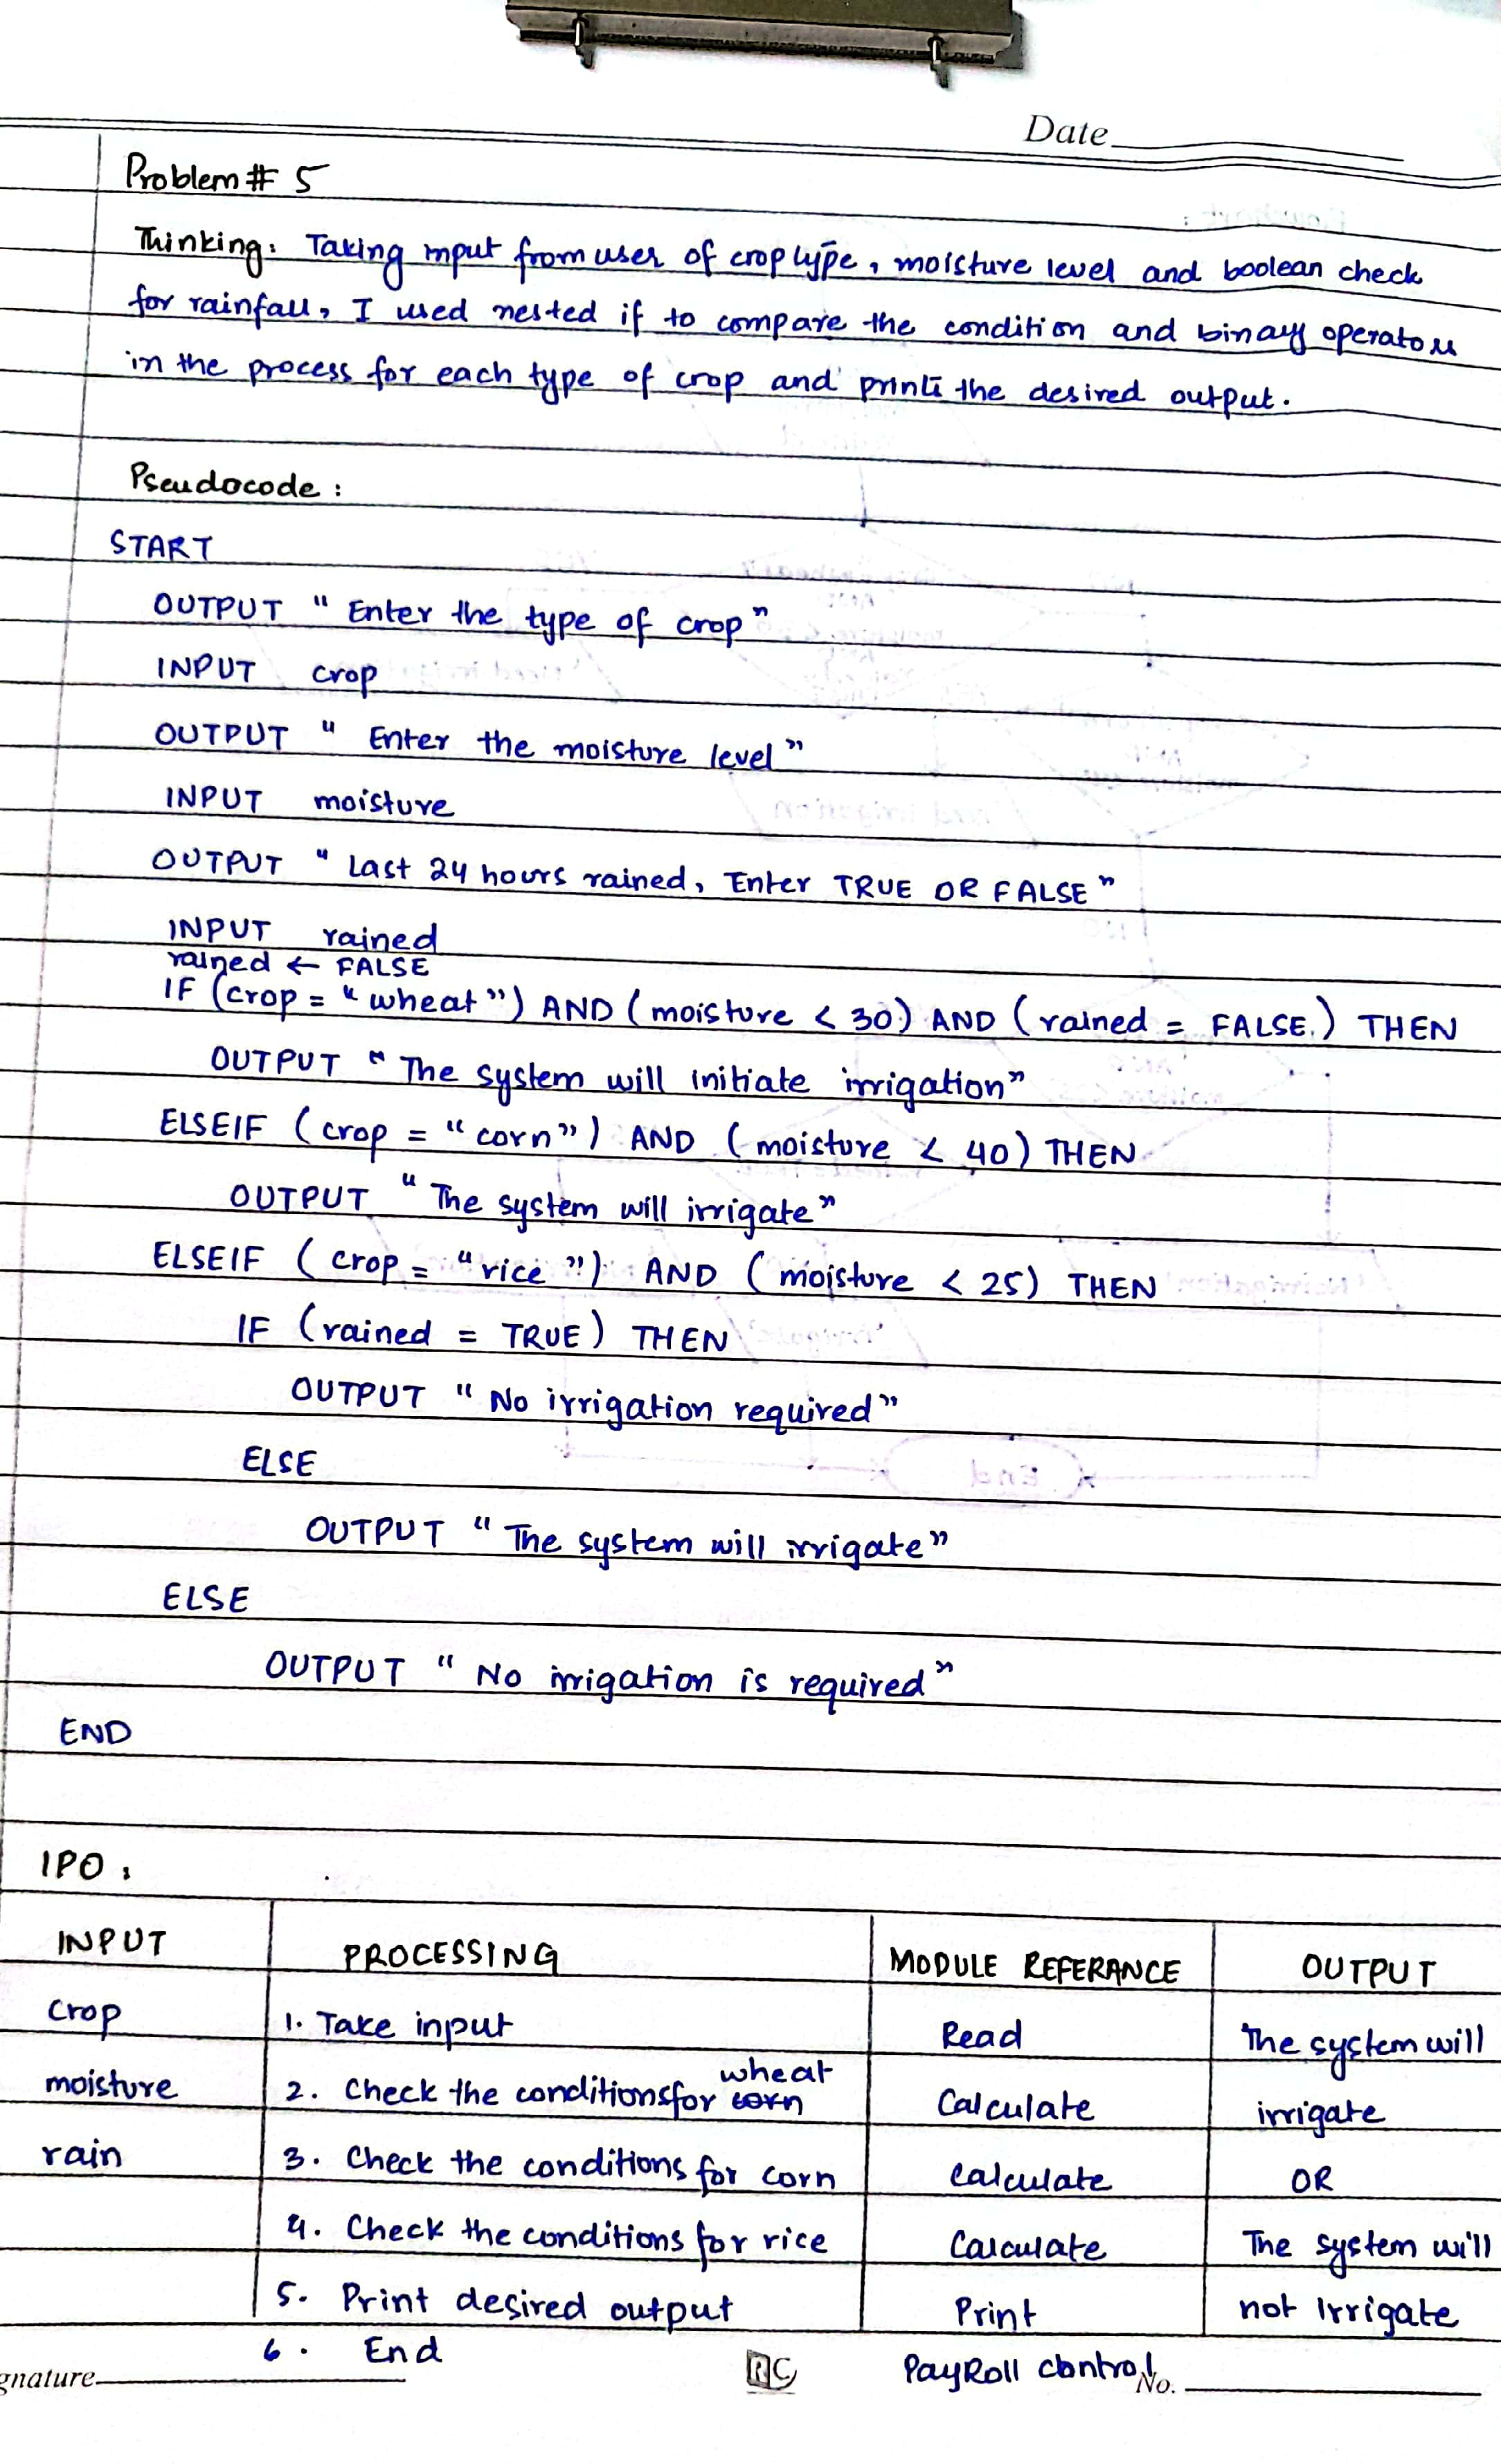 Date
Problem # 5
Thinking: Taking input from user of crop type, moisture level and boolean check
for rainfall, I used nested if to compare the condition and binary operators
in the process for each type of crop and prints the desired output.
Pseudocode:
START
OUTPUT "Enter the type of crop"
INPUT crop
OUTPUT "Enter the moisture level"
INPUT moisture
OUTPUT "Last 24 hours rained, Enter TRUE OR FALSE"
INPUT rained
rained ← FALSE
IF (crop = "wheat") AND (moisture < 30) AND (rained = FALSE.) THEN
OUTPUT "The system will initiate irrigation"
ELSEIF (crop = "corn") AND (moisture < 40) THEN
OUTPUT "The system will irrigate"
ELSEIF (crop = "rice") AND (moisture < 25) THEN
IF (rained = TRUE) THEN
OUTPUT "No irrigation required"
ELSE
OUTPUT "The system will irrigate"
ELSE
OUTPUT "No irrigation is required"
END
IPO:
INPUT PROCESSING MODULE REFERANCE OUTPUT
crop 1. Take input Read The system will
moisture 2. Check the conditions for corn wheat Calculate irrigate
rain 3. Check the conditions for corn Calculate OR
4. Check the conditions for rice Calculate The system will
5. Print desired output Print not Irrigate
6. End PayRoll control
gnature RC No.